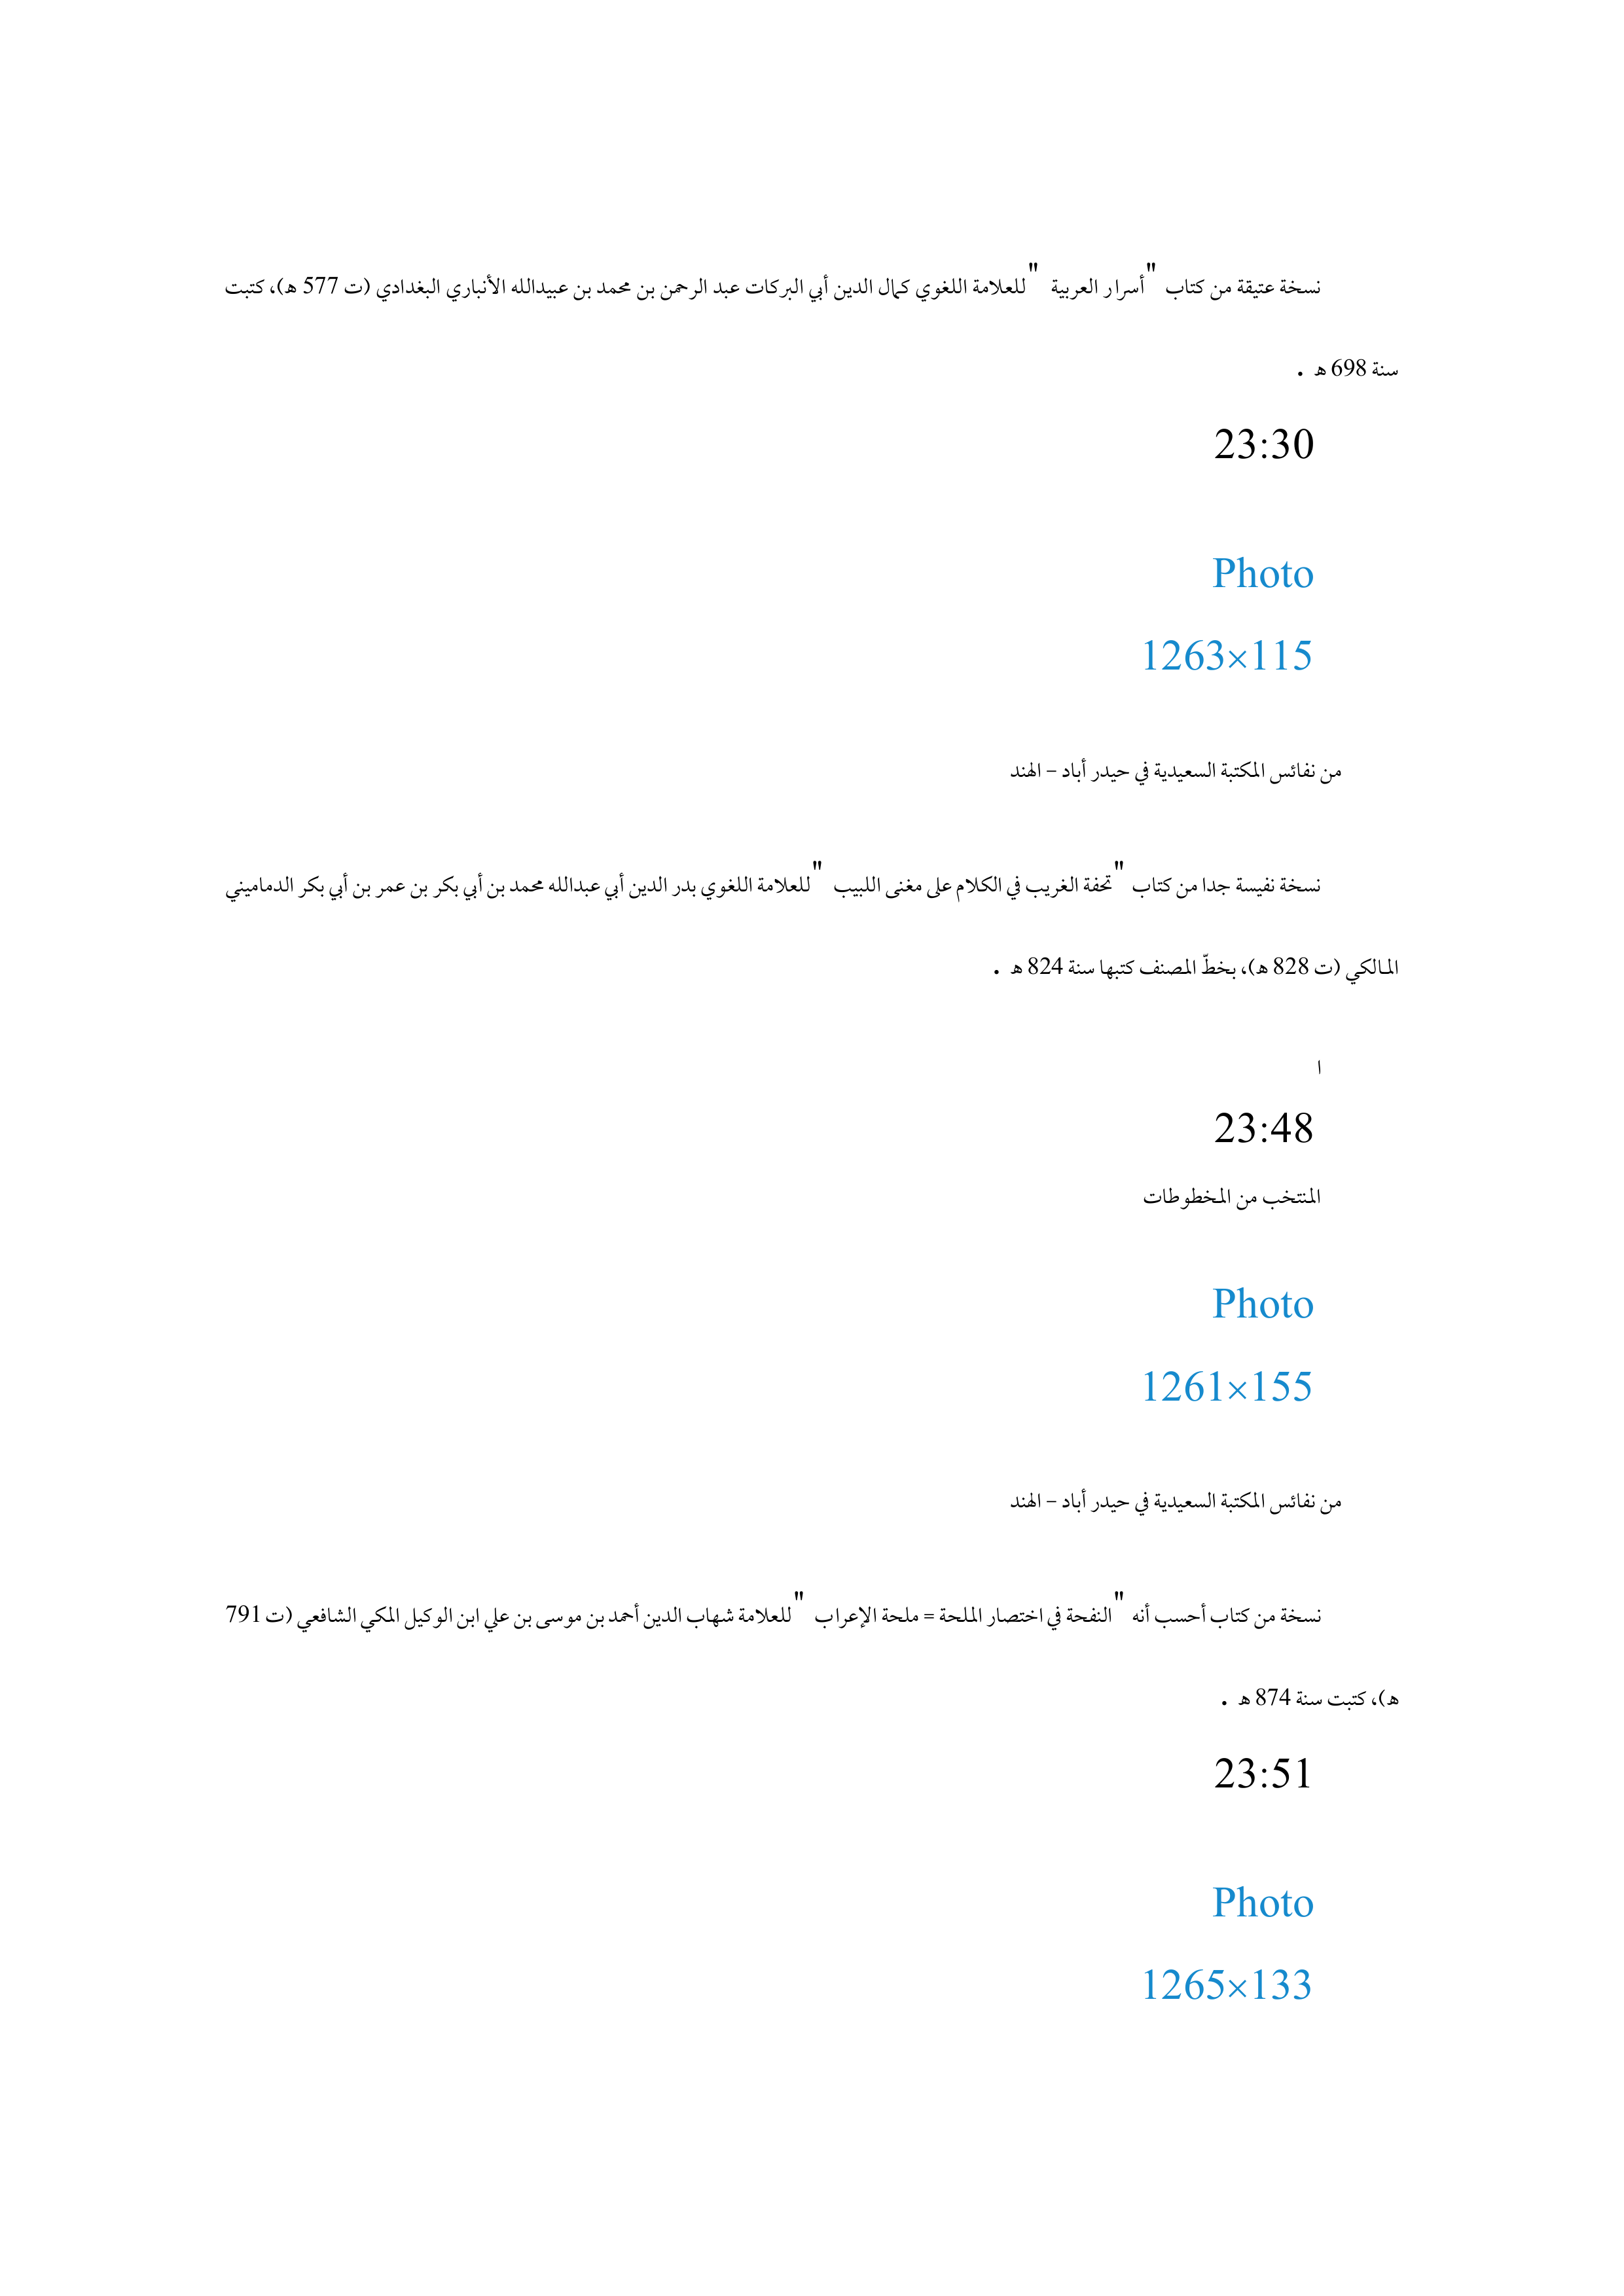 نسخة عتيقة من كتاب "أسرار العربية " للعلامة اللغوي كمال الدين أبي البركات عبد الرحمن بن محمد بن عبيدالله الأنباري البغدادي (ت 577 ه)، كتبت
سنة 698 ه .
23:30
Photo
1263×115
من نفائس المكتبة السعيدية في حيدر أباد – الهند
نسخة نفيسة جدا من كتاب "تحفة الغريب في الكلام على مغنى اللبيب " للعلامة اللغوي بدر الدين أبي عبدالله محمد بن أبي بكر بن عمر بن أبي بكر الدماميني
المالكي (ت 828 ه)، بخطّ المصنف كتبها سنة 824 ه .
ا
23:48
المنتخب من المخطوطات
Photo
1261×155
من نفائس المكتبة السعيدية في حيدر أباد – الهند
نسخة من كتاب أحسب أنه "النفحة في اختصار الملحة = ملحة الإعراب " للعلامة شهاب الدين أحمد بن موسى بن علي ابن الوكيل المكي الشافعي (ت 791
ه)، كتبت سنة 874 ه .
23:51
Photo
1265×133